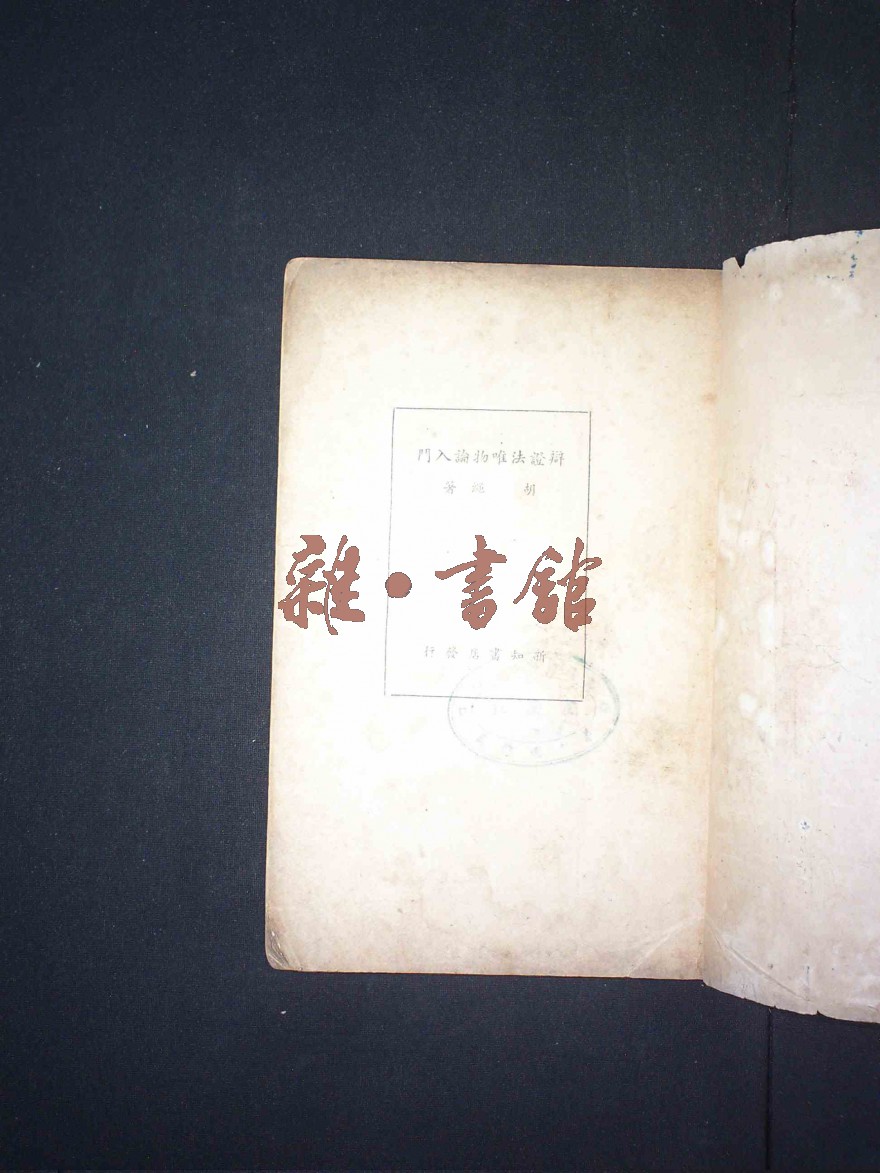 辯證法唯物論入門
胡繩著
雜·書館
新知書店發行